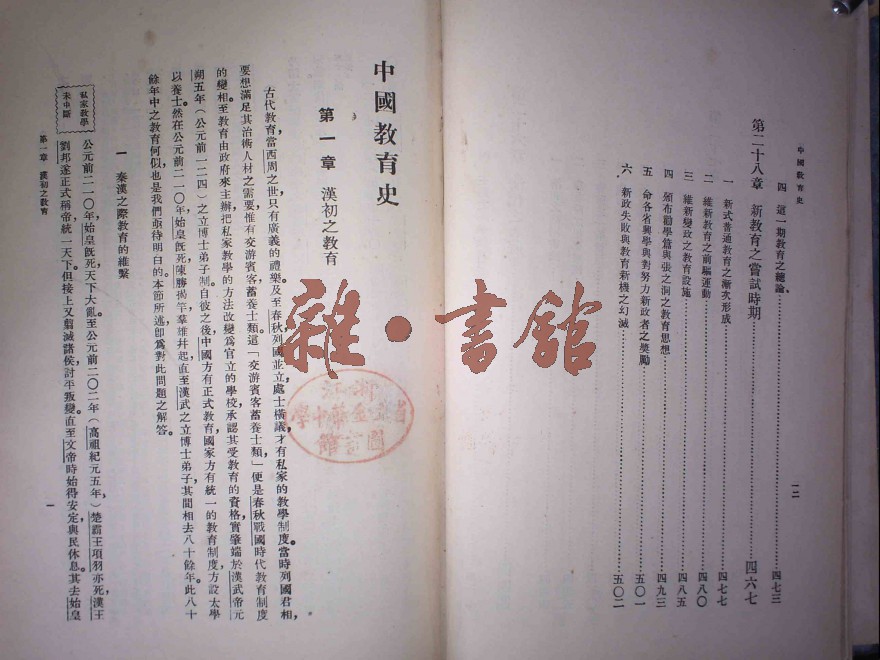 中國教育史
四 這一期教育之總論……四七三
第二十八章 新教育之嘗試時期……四六七
一 新式普通教育之漸次形成……四七七
二 維新教育之前驅運動……四八〇
三 維新變政之教育設施……四八五
四 頒布勸學篇與張之洞之教育思想……四九三
五 命各省興學與對努力新政者之獎勵……五〇一
六 新政失敗與教育新機之幻滅……五〇二
一二
中國教育史
第一章 漢初之教育
古代教育當西周之世只有廣義的禮樂。及至春秋列國並立，處士橫議，才有私家的教學制度。當時列國君相，
要想滿足其治術人材之需要，惟有交游賓客蓄養士類。這「交游賓客蓄養士類」便是春秋戰國時代教育制度
的變相。至教育由政府來主辦，把私家教學的方法改變爲官立的學校，承認其受教育的資格，實肇端於漢武帝元
朔五年（公元前一二四）之立博士弟子制。自彼之後，中國方有正式教育，國家方有統一的教育制度，方設太學
以養士。然在公元前二一〇年，始皇旣死，陳勝揭竿，羣雄幷起，直至漢武之立博士弟子，其間相去八十餘年。此八十
餘年中之教育何似，也是我們亟待明白的。本節所述，卽爲對此問題之解答。
一 秦漢之際教育的維繫
私家教學
未中斷
公元前二一〇年，始皇旣死，天下大亂。至公元前二〇二年（高祖紀元五年，）楚霸王項羽亦死，漢王
劉邦遂正式稱帝，統一天下。但接上又翦滅諸侯，討平叛變。直至文帝時，始得安定與民休息。其去始皇
第一章 漢初之教育
一
雜·書館